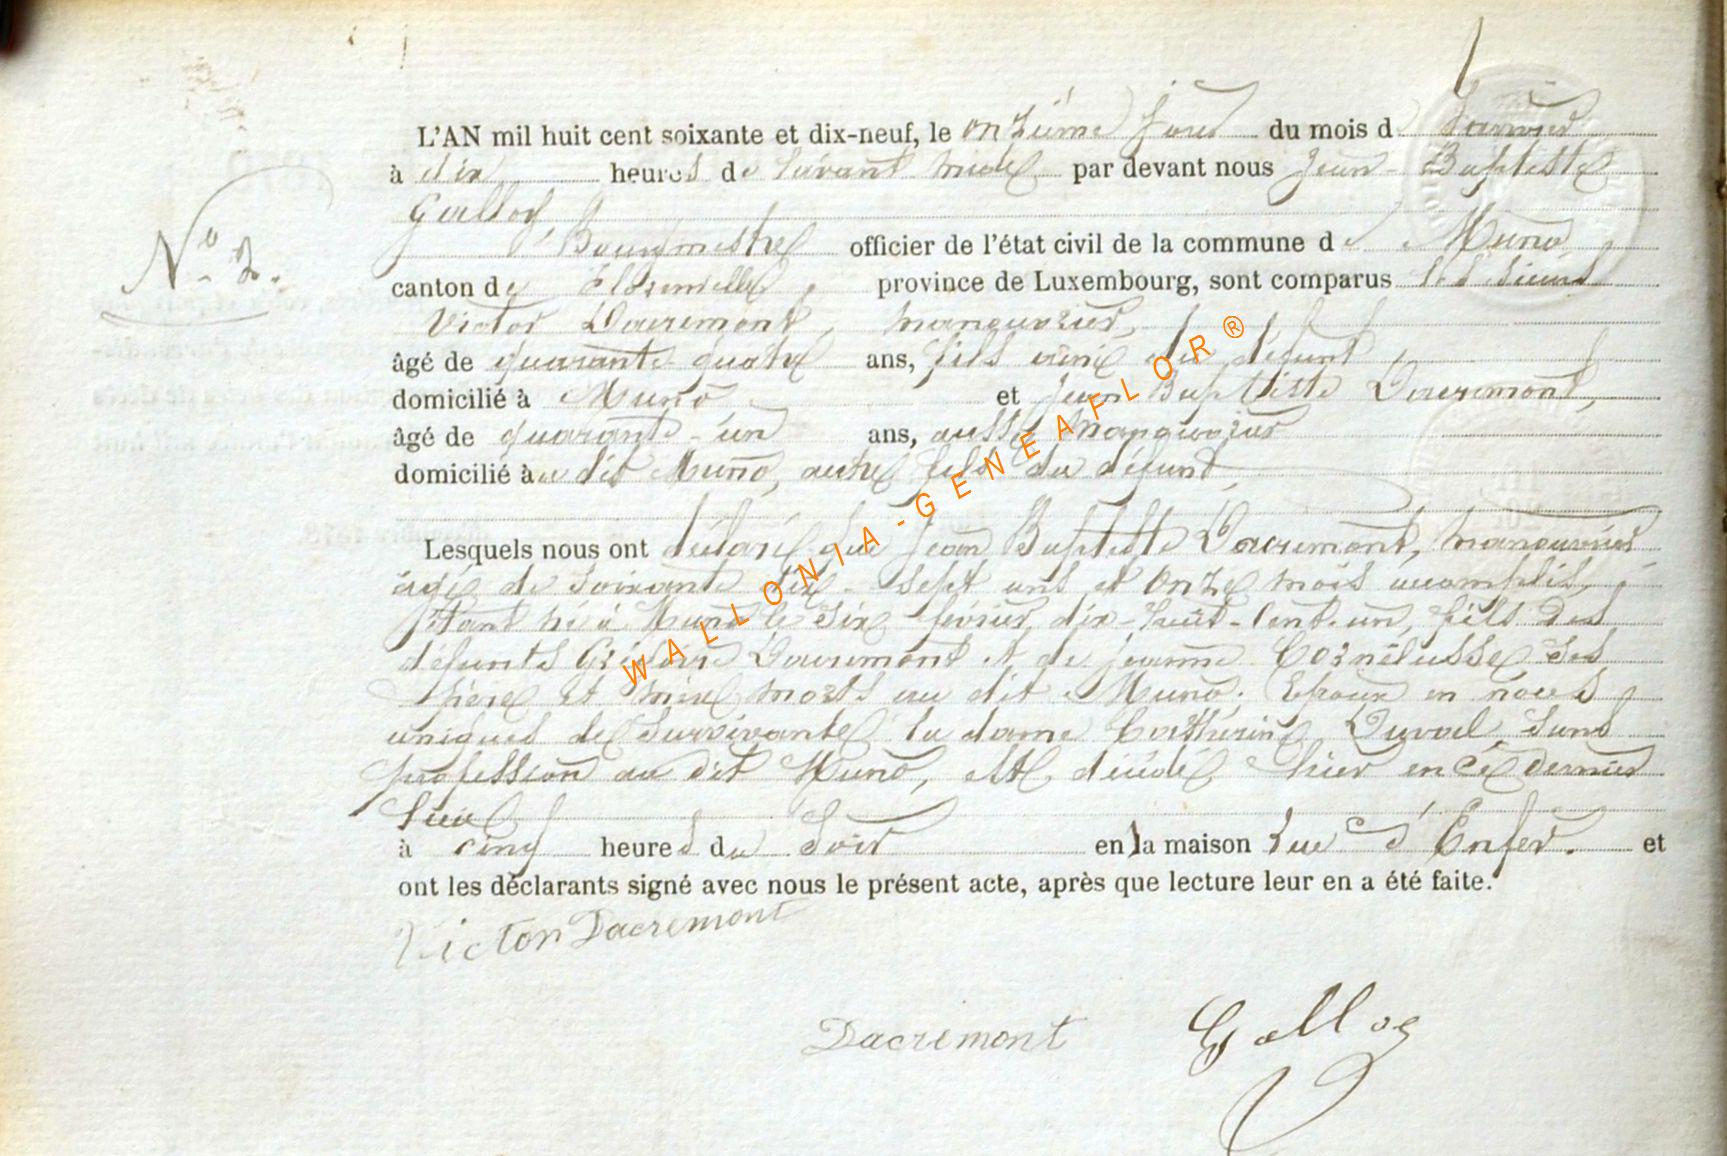 L'AN mil huit cent soixante et dix-neuf, le onzième jour du mois d Janvier
à dix heures de l'avant midi par devant nous Jean-Baptiste
Bourgmestre officier de l'état civil de la commune de Muno,
N° 2.
canton de Florenville, province de Luxembourg, sont comparus les sieurs
Victor Dacremont, manouvrier,
âgé de quarante-quatre ans, fils ainé du défunt,
domicilié à Muno et Jean Baptiste Dacremont,
âgé de quarante-un ans, aussi manouvrier
domicilié au dit Muno, autre fils du défunt,
Lesquels nous ont déclaré que Jean Baptiste Dacremont, manouvrier
âgé de soixante dix-sept ans et onze mois accomplis,
étant né à Muno le six février dix-huit-cent-un, fils des
défunts Grégoire Dacremont et de Jeanne Cornélusse ses
père et mère morts au dit Muno. Epoux en noces
uniques de survivante la dame Catherine Duval, sans
profession au dit Muno, est décédé hier en ce dernier
lieu
à cinq heures du soir en la maison rue d'Enfer. et
ont les déclarants signé avec nous le présent acte, après que lecture leur en a été faite.
Victor Dacremont
Dacremont
WALLONIA-GENEAFLOR®